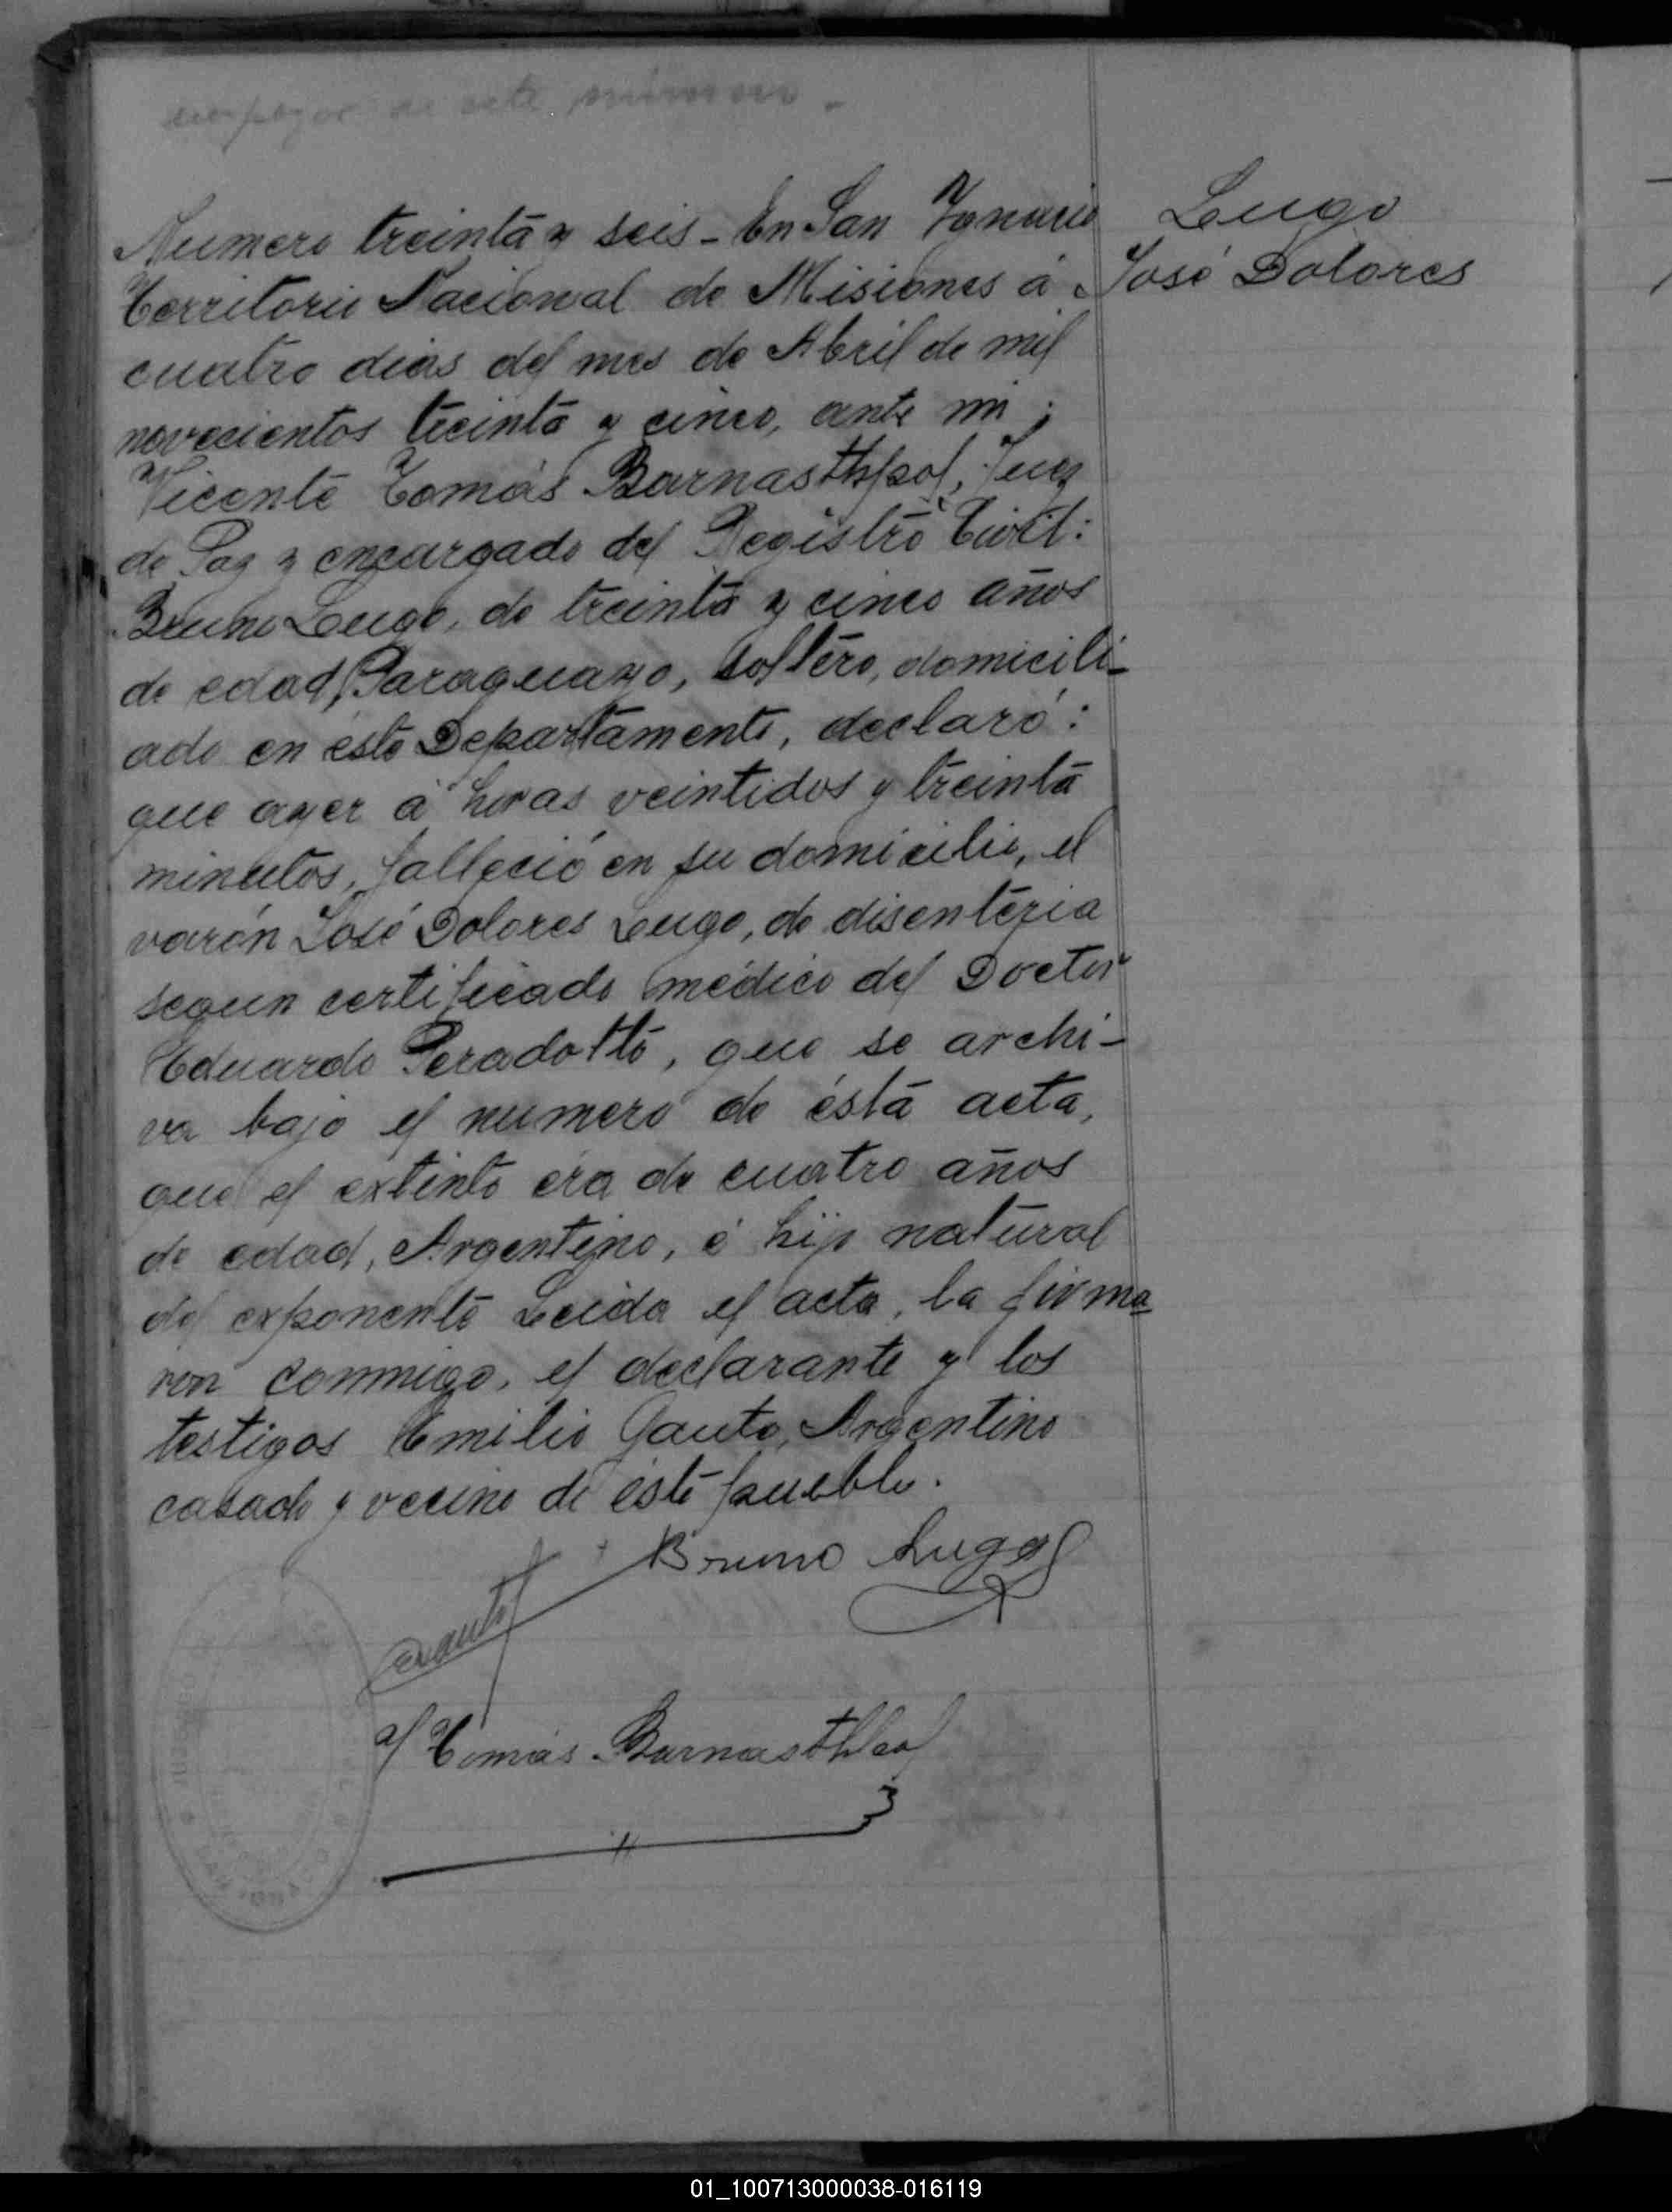 de este número.
Numero treinta y seis - En San Ygnacio
Territorio Nacional de Misiones á
cuatro dias del mes de Abril de mil
novecientos treinta y cinco, ante mi:
Vicente Tomás Barnasthpol, Juez
de Paz y encargado del Registro Civil:
Bruno Lugo, de treinta y cinco años
de edad, Paraguayo, soltero, domicili-
ado en éste Departamento, declaró:
que ayer á horas veintidos y treinta
minutos, falleció en su domicilio, el
varón José Dolores Lugo, de disenteria
segun certificado médico del Doctor
Eduardo Peradotto, que se archi-
va bajo el numero de ésta acta,
que el extinto era de cuatro años
de edad, Argentino, é hijo natural
del exponente Leida el acta, la firma
ron conmigo, el declarante y los
testigos Emilio Gauto, Argentino
casado y vecino de éste pueblo.
Lugo
José Dolores
Bruno Lugo
Gauto
Tomás Barnasthpol
01_100713000038-016119